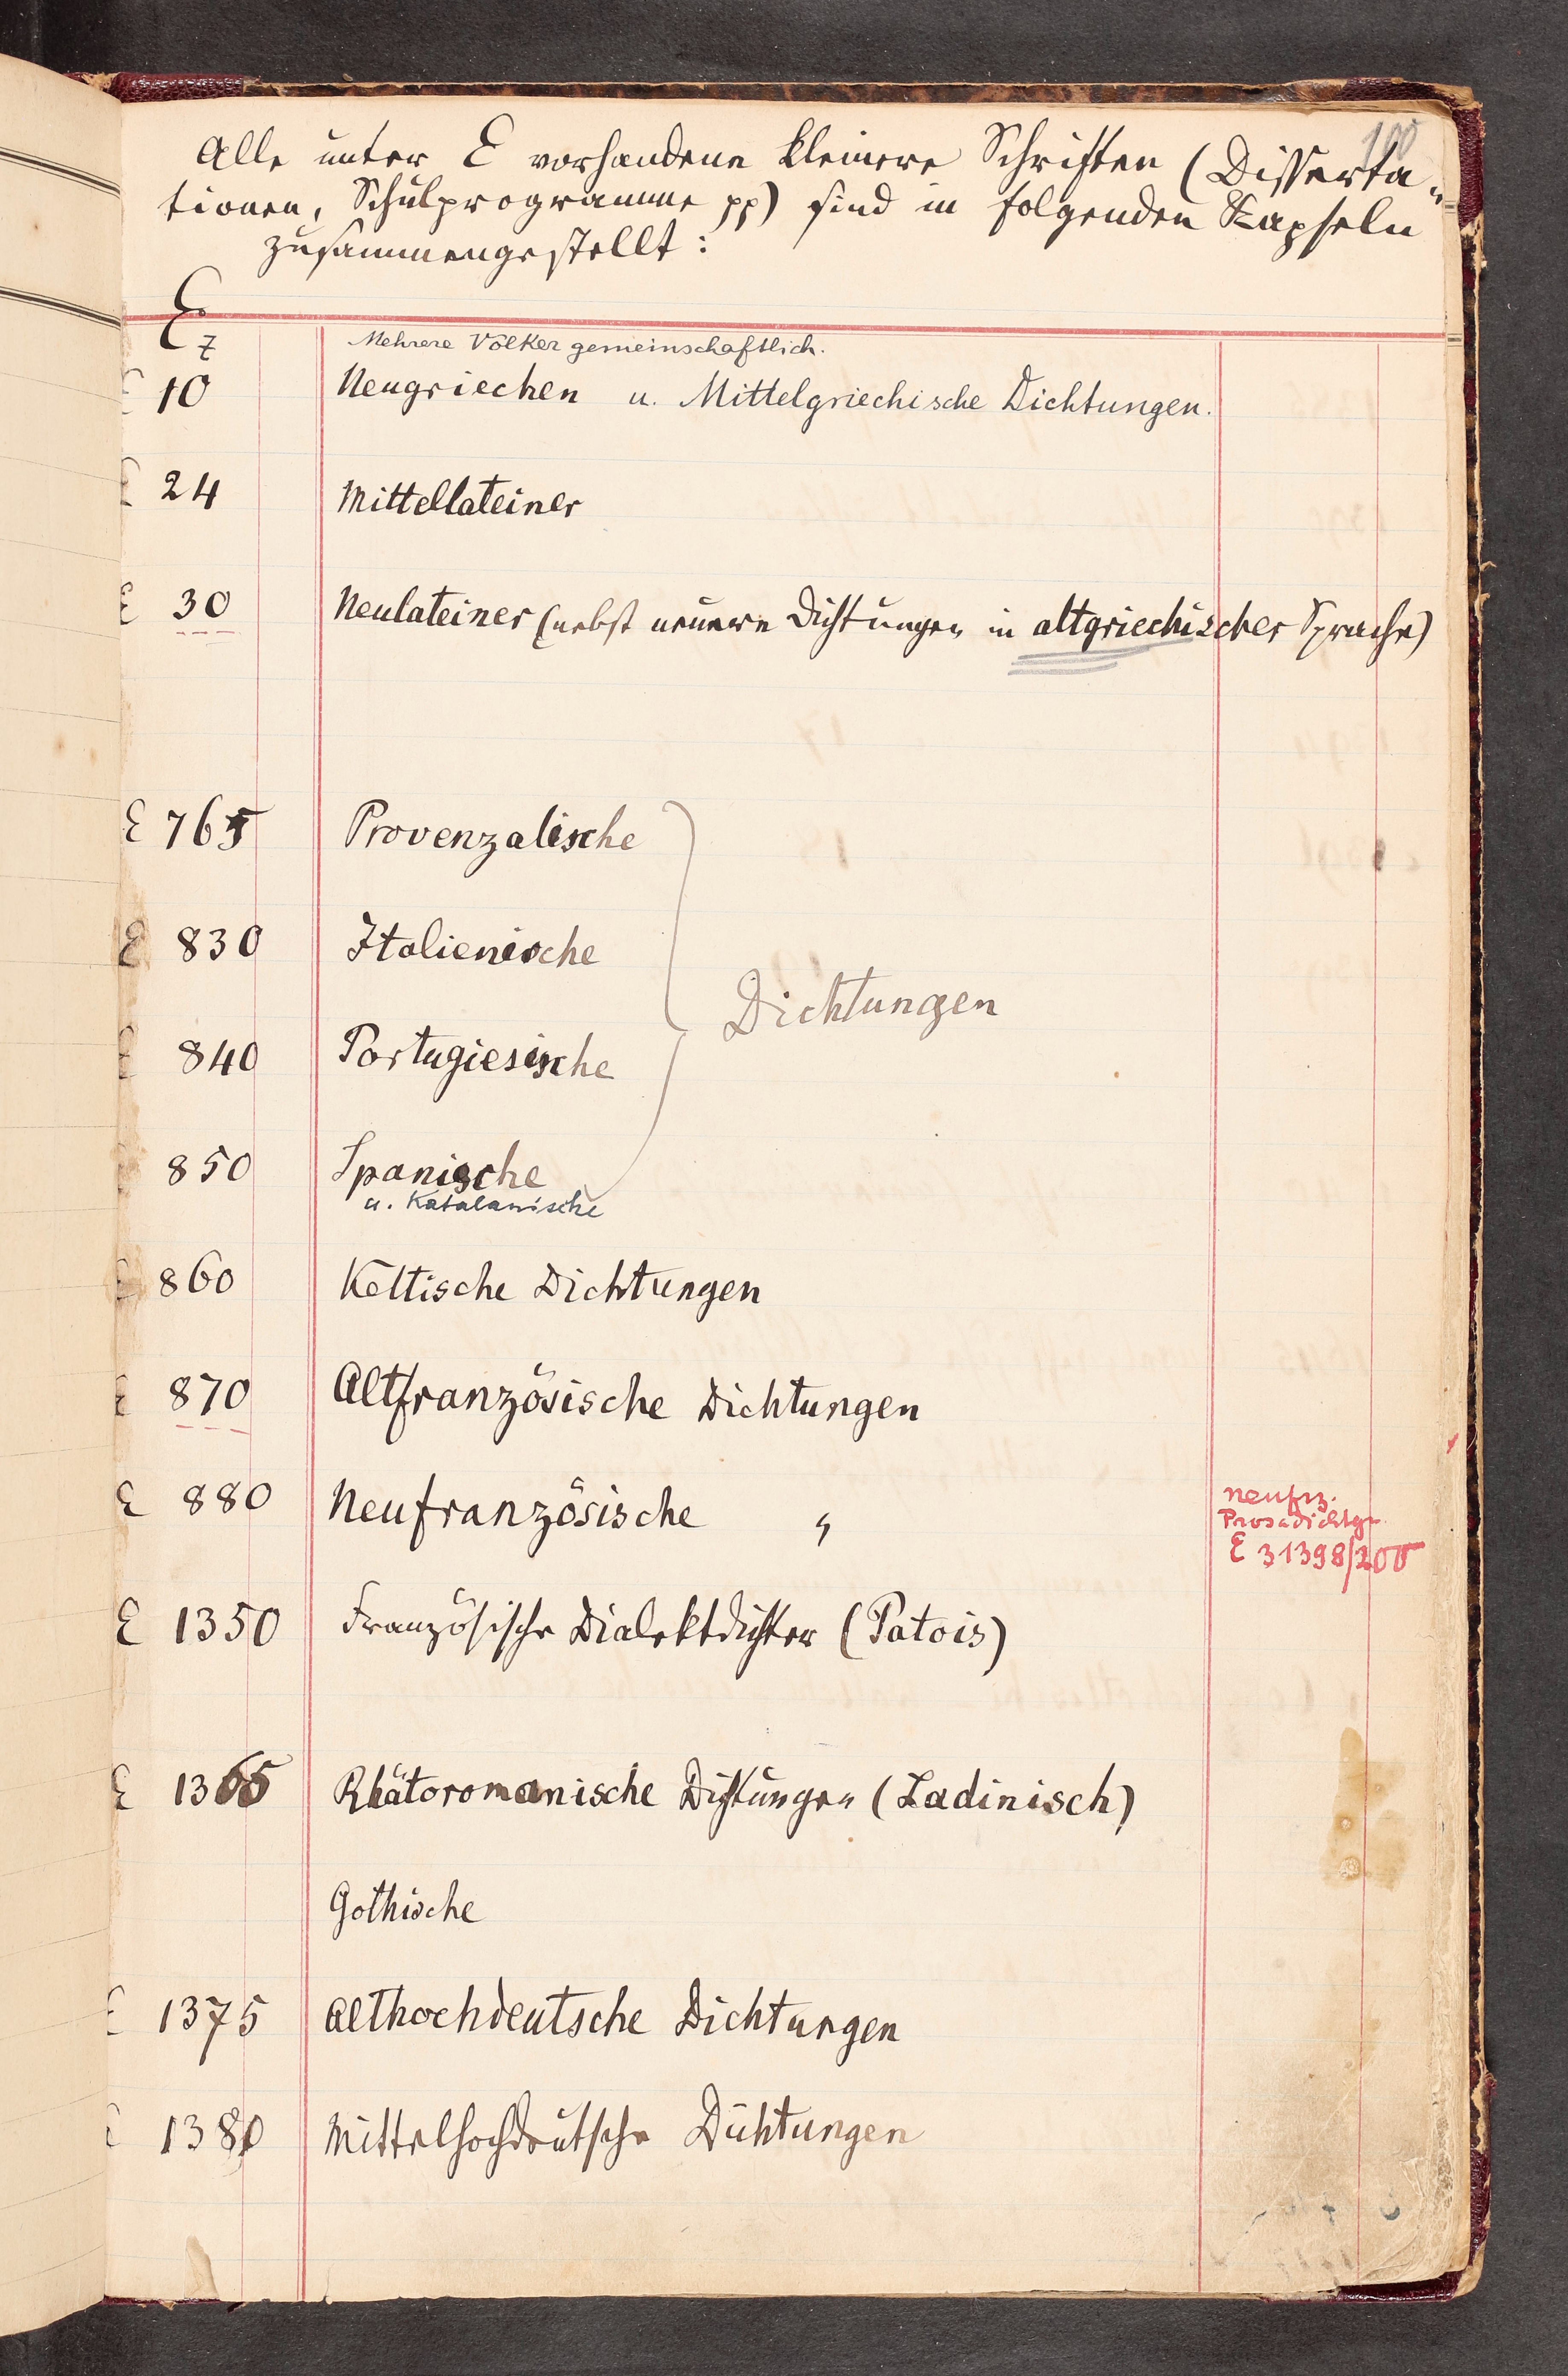 100
Alle unter E vorhandene kleinere Schriften (Disserta-
tionen, Schulprogramme pp) sind in folgenden Kapseln
zusammengestellt:
E 7 Mehrere Völker gemeinschaftlich.
E 10 Neugriechen u. Mittelgriechische Dichtungen.
E 24 Mittellateiner
E 30 Neulateiner (nebst neuere Dichtungen in altgriechischer Sprache)
E 765 Provenzalische
E 830 Italienische
Dichtungen
E 840 Portugiesische
E 850 Spanische
u. Katalanische
E 860 Keltische Dichtungen
E 870 Altfranzösische Dichtungen
E 880 Neufranzösische "
neufrz.
Prosadichtgn.
E 31398/200
E 1350 Französische Dialektdichter (Patois)
E 1365 Rhätoromanische Dichtungen (Ladinisch)
Gothische
E 1375 Althochdeutsche Dichtungen
E 1380 Mittelhochdeutsche Dichtungen